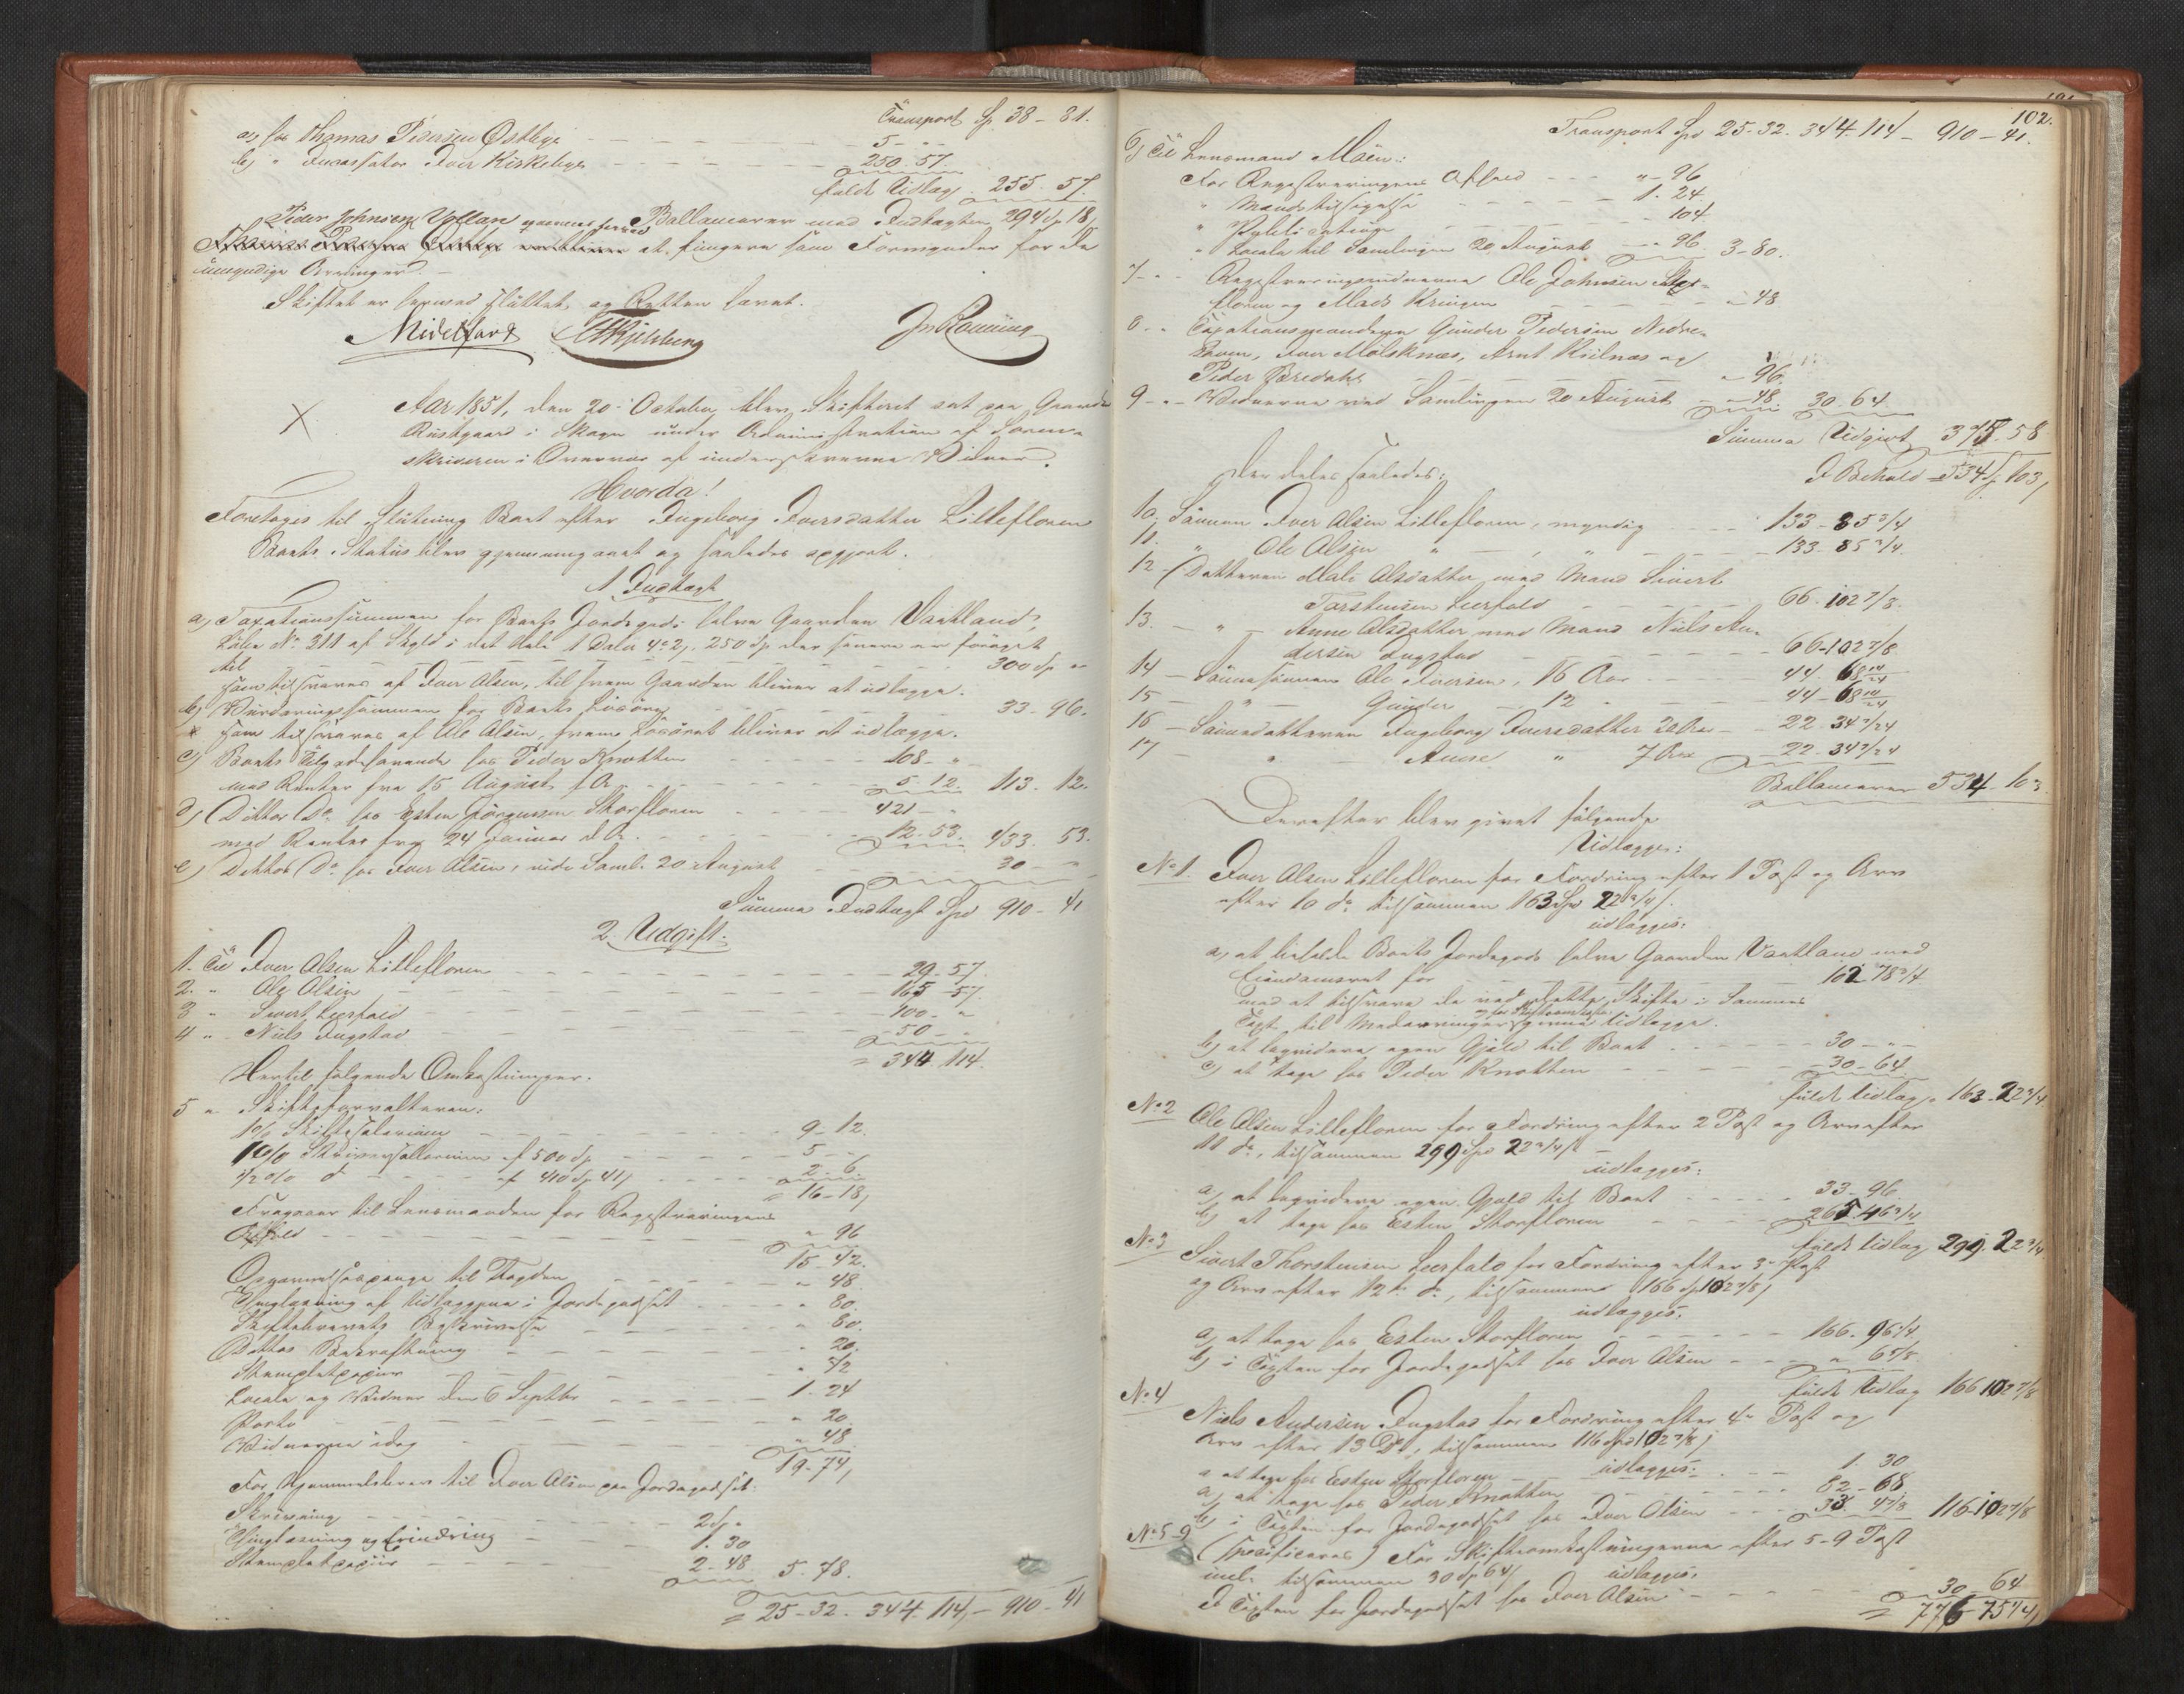 Transport Sp 38 - 81.
a, hos Thomas Pedersen Østbye - - - 5 - "
b, " Incassator Iver Kirkebye - - - 250. 57.
fuldt Udlæg. 255. 57.
Ballancerer med Indtægten, 294 Sp 18,
Peder Johnsen Vollan at fungere som Formynder for de
umyndige Arvinger. -
Skiftet er hermed sluttet og Retten hævet.
Midelfart
Aar 1851, den 20de October blev Skifteret sat paa Gaarden
Rustgaard i Skogn under Administration af Soren-
skriveren i Overvær af underskrevne Vidner.
Hvorda!
Foretoges til Slutning Boet efter Ingeborg Iversdatter Lillefloren
Boets Status blev gjennemgaaet og saaledes opgjort.
1 Indtægt
a, Taxationssummen for Boets Jordegods halve Gaarden Vantland,
Løbe No 211 af Skyld i det Hele 1 Daler 4 2, 250 Sp der senere er forøget
til - - - 300 Sp "
som tilsvares af Iver Olsen, til hvem Gaarden bliver at udlægge.
b, Vurderingssummen for Boets Løsøre - - - 33 - 96.
som tilsvares af Ole Olsen, hvem Løsøret bliver at udlægge.
c, Boets Tilgodehavende hos Peder Knotten - - - 108 - "
med Renter fra 15 August f. A. - - - 5. 12. 113. 12.
d, Dittos Do hos Esten Jørgensen Storfloren - - - 421 - "
med Renter fra 24 Januar d. A. - - - 12. 53. 433. 53.
e, Dittos Do hos Iver Olsen, vide Saml. 20 August - - - 30 - "
Summa Indtægt Spd 910 - 41
2. Udgift.
1. Til Iver Olsen Lillefloren - - - 29 - 57.
2. " Ole Olsen - - - 165 - 57.
3 " Sivert Leerfald - - - 100 - "
4 " Niels Ingstad - - - 50 - "
= 344. 114.
Hertil følgende Omkostninger.
5 " Skifteforvalteren:
1% Skiftesalarium - - - 9 - 12.
1% Skriversallarium af 500 Sp - - - 5 - "
1/2 % do - - - af 410 Sp 41, - - - 2 - 6.
= 16 - 18,
Fragaaer til Lensmanden for Registreringens
Afhold - - - " 96
15 - 42.
Opnævnelsespenge til Fogden - - - " 48.
Thinglæsning af Udlæggene i Jordegodset - - - " 80.
Skiftebrevets Beskrivelse - - - " 80.
Dittos Bekræftning - - - " 20.
Stempletpapiir - - - " 42
Locale og Vidner den 6 Septbr - - - 1. 24
Porto - - - " 20
Vidnerne idag - - - " 48
19 - 74,
For Hjemmelsbrev til Iver Olsen paa Jordegodset:
Skrivning - - - 2 Sp "
Thinglæsning og Erindring - - - 1. 30
Stempletpapiir - - - 2 - 48 5. 78.
= 25 - 32 - 344. 114, - 910 - 41
102.
Transport Spd 25 - 32. 344. 114 - 910 - 41.
6, Til Lensmand Moen:
For Registreringens Afhold - - - " - 96
" Mandetilsigelse - - - 1. 24
" Publicationer - - - 104
" Locale til Samlingen 20 August - - - 96. 3 - 80.
7 - " - Registreringsvidnerne Ole Johnsen Stor-
floren og Mads Kringen - - - " 48
8 - " Taxationsmændene Gunder Pedersen Nedre-
Iver Molsknæs, Arnt Kiilnæs og
Peder Bredahl - - - 96.
9 - " - Vidnerne ved Samlingen 20 August - - - 48. 30. 64
Summa Udgivt 375. 58
I Behold = 534 Sp 103,
Der deles saaledes:
10, Sønnen Iver Olsen Lillefloren, myndig - - - 133 - 85 3/4
11. " Ole Olsen " - , " - - - 133 - 85 3/4.
12 - Datteren Mali Olsdatter med Mand Sivert
Torstensen Leerfald - - - 66 - 102 7/8.
13. - " - Anne Olsdatter med Mand Niels An-
dersen Ingstad - - - 66 - 102 7/8
14 - Sønnesønnen Ole Iversen, 16 Aar - - - 44. 68 14/24
15 - " - Gunder - 12 " - - - 44 - 68 14/24
16 - Sønnedatteren Ingeborg Iversdatter 20 Aar - 22. 34 7/24
17 - " - Anne " 7 Aar - 22 - 34 7/24
Ballancerer 534. 103
Derefter blev givet følgende
Udlægge:
No 1. Iver Olsen Lillefloren for Fordring efter 1 Post og Arv
efter 10 do tilsammen 163 Spd 22 3/4,
udlægges:
a, at beholde Boets Jordegods halve Gaarden Vantland med
Eiendomsret for - - - 102 78 3/4
mod at tilsvare de ved dette Skifte i Sammes
Taxt til Medarvinger givne Udlægge.
b, at liqvidere egen Gjæld til Boet - - - 30 - " -
c, at tage hos Peder Knotten - - - 30 - 64.
fuldt Udlæg. 163 - 22 3/4.
No 2 Ole Olsen Lillefloren for Fordring efter 2 Post og Arv efter
11 do, tilsammen 299 Spd 22 3/4 ß -
udlægges:
a, at liqvidere egen Gjæld til Boet - - - 33. 96.
b, at tage hos Esten Storfloren - - - 265. 46 3/4
fuldt Udlæg 299. 22 3/4
No 3 Sivert Thorstensen Leerfald for Fordring efter 3de Post
og Arv efter 12te do, tilsammen 166 Sp 102 7/8,
udlægges:
a, at tage hos Esten Storfloren - - - 166. 96 1/4
b, i Taxten for Jordegodset hos Iver Olsen - - - " 6 5/8
fuldt Udlæg 166 102 7/8
No 4 Niels Andersen Ingstad for Fordring efter 4de Post og
Arv efter 13 Do, tilsammen 116 Spd 102 7/8,
udlægges:
a at tage hos Esten Storfloren - - - 1. 30
a, at tage hos Peder Knotten - - - 82 - 68
b, i Taxten for Jordegodset hos Iver Olsen - - - 33. 4 7/8 116 - 102 7/8
No 5-9 (Specificeres) For Skifteomkostningerne efter 5-9 Post
incl. tilsammen 30 Sp 64,
udlægges:
I Taxten for Jordegodset hos Iver Olsen - - - 30 - 64
= 776 - 75 1/4,